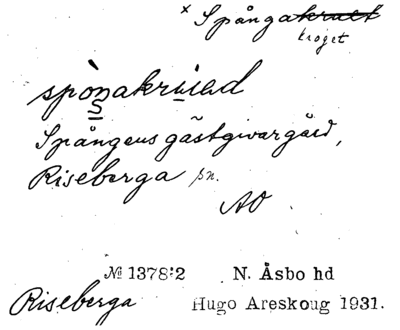 × Spångakrutt
kroget
spòn̠akru̠ad
Spångens gästgivargård,
Riseberga sn.
AO
№ 1378:2 N. Åsbo hd
Riseberga Hugo Areskoug 1931.